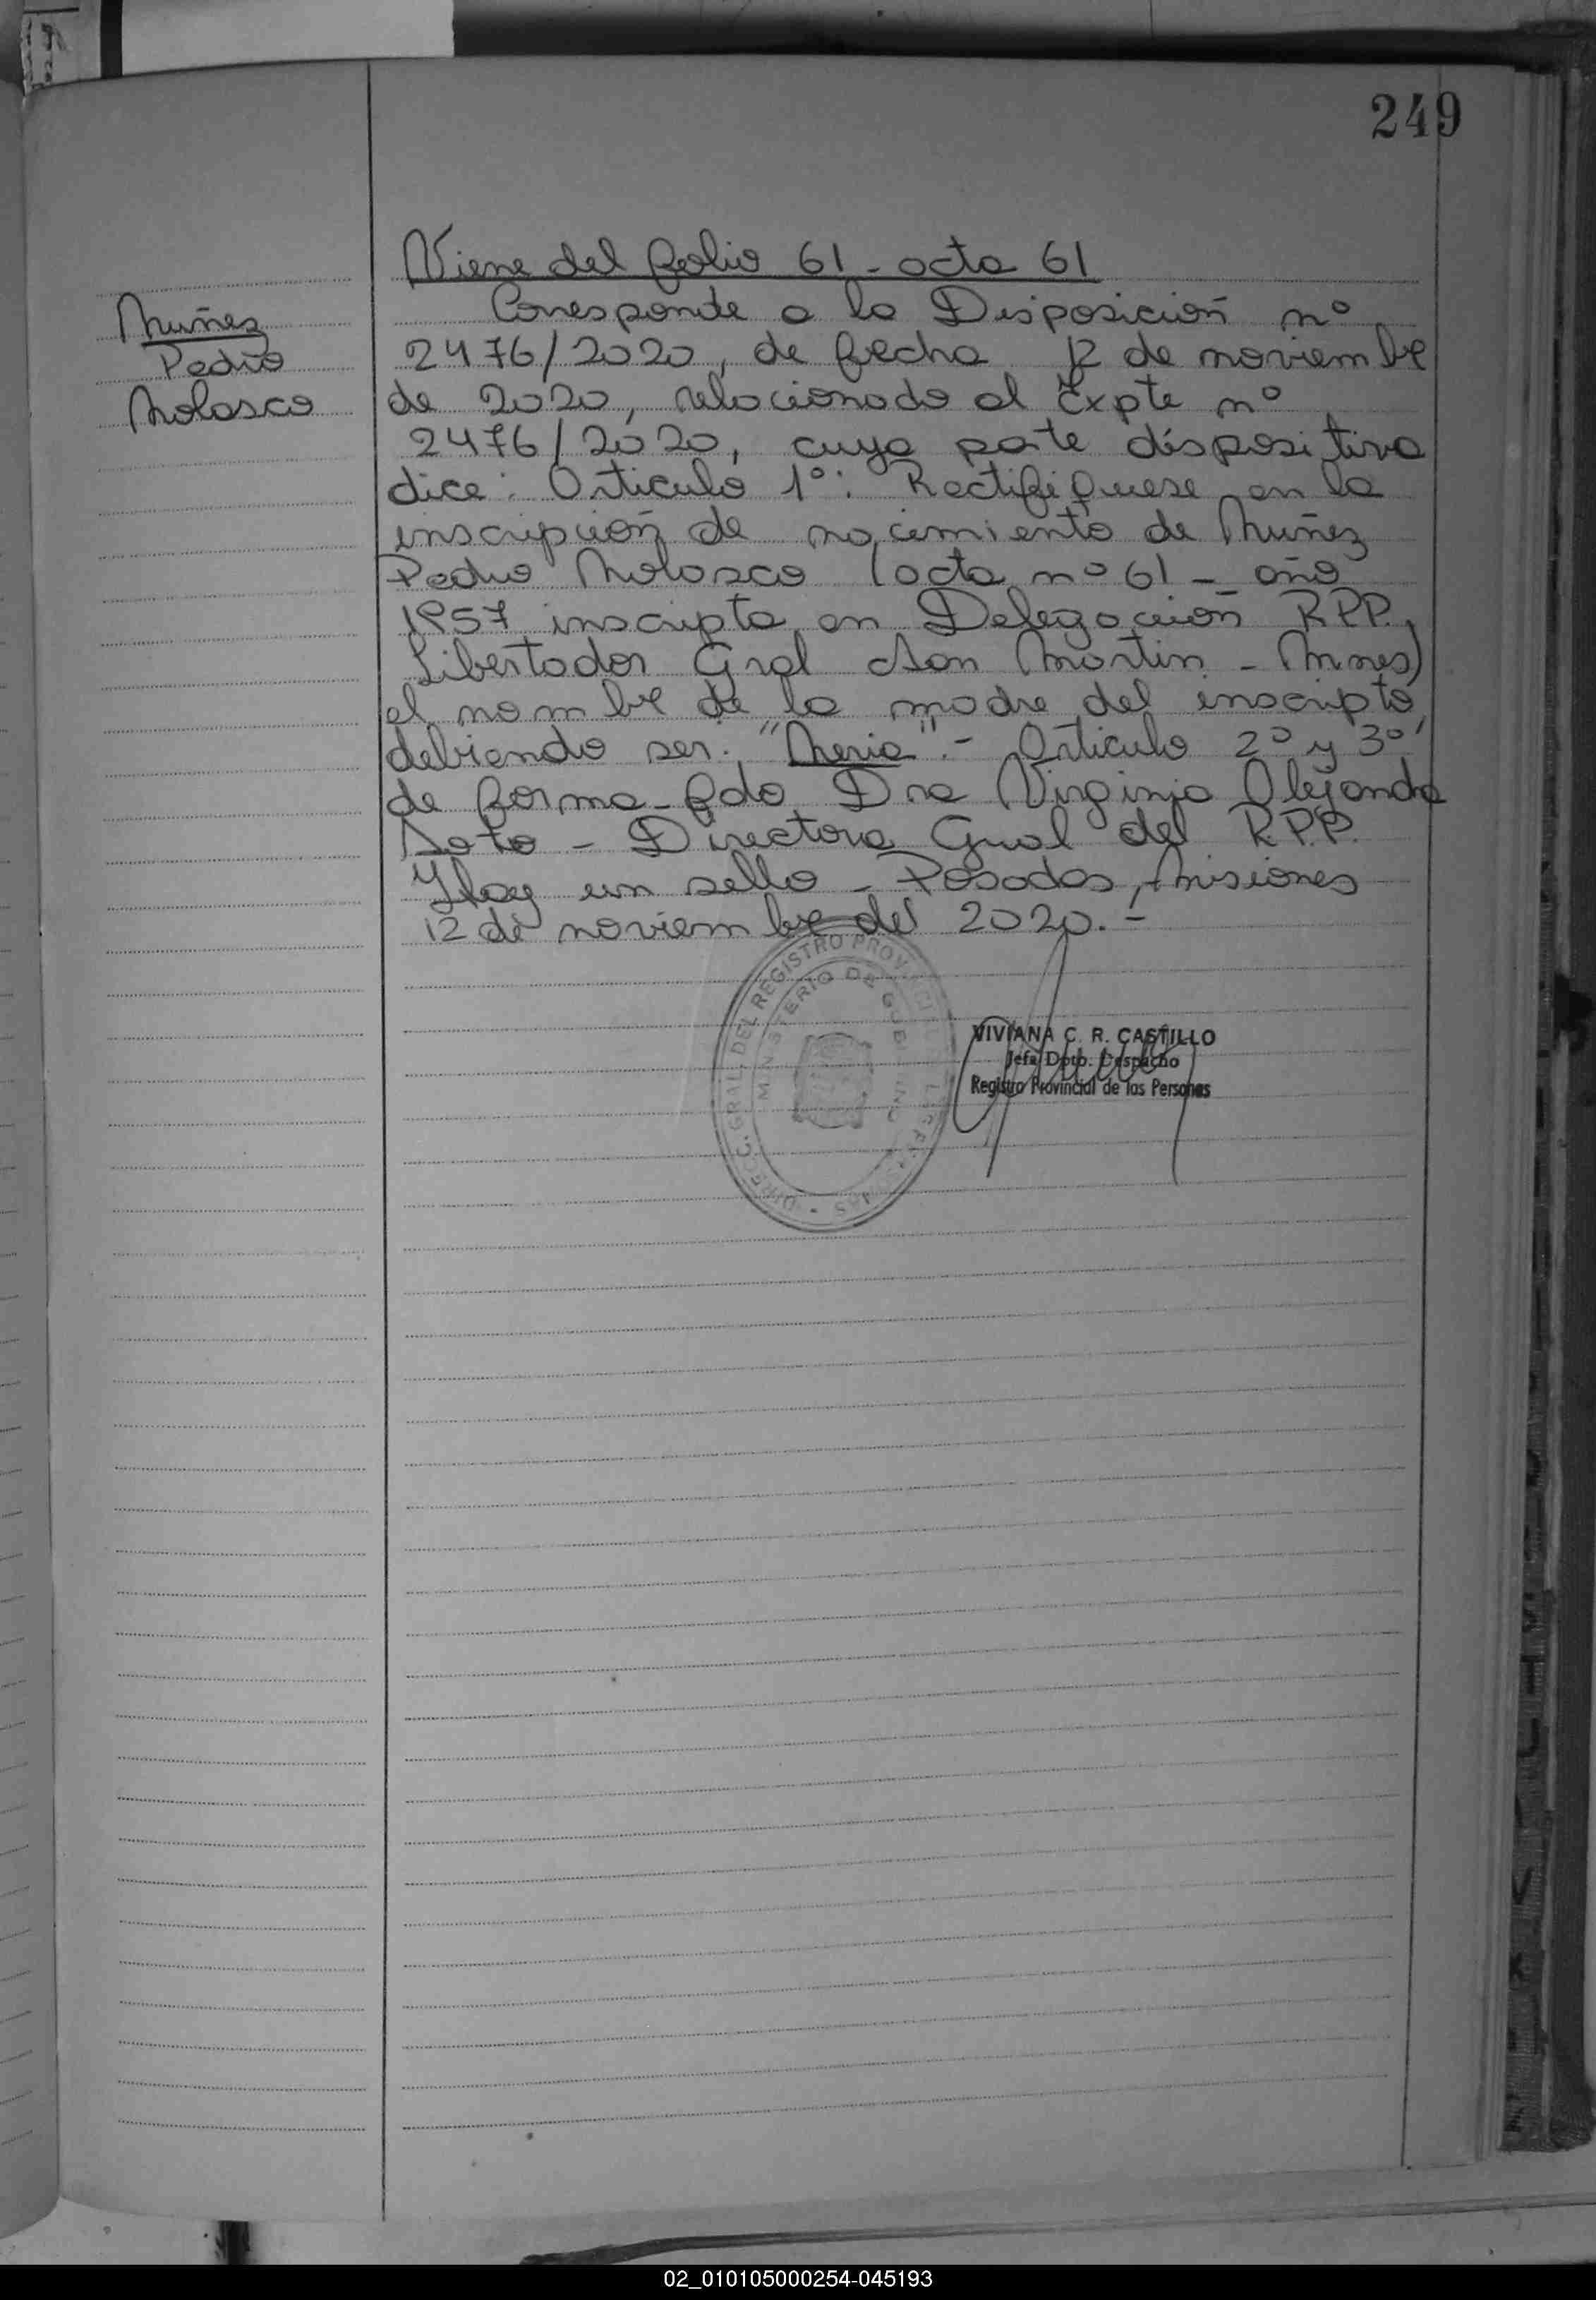 249
Viene del folio 61 - acta 61
Nuñez
Pedro
Nolasco
Corresponde a la Disposición nº
2476/2020, de fecha 12 de noviembre
de 2020, relacionado al Expte nº
2476/2020, cuya parte dispositiva
dice: Articulo 1º: Rectifiquese en la
inscripción de nacimiento de Nuñez
Pedro Nolasco (acta nº 61 - año
1957 inscripta en Delegación R.P.P.
Libertador Gral San Martin - Mnes)
el nombre de la madre del inscripto,
debiendo ser: "Maria".- Articulo 2º y 3º
de forma - fdo Dra Virginia Alejandra
Soto - Directora Gral del R.P.P.
Hay un sello - Posadas, Misiones
12 de noviembre del 2020.-
DIREC. GRAL. DEL REGISTRO PROV
MINISTERIO DE
VIVIANA C. R. CASTILLO
Jefa Dpto. Despacho
Registro Provincial de las Personas
02_010105000254-045193